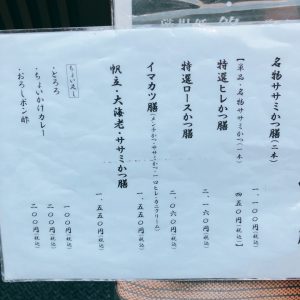 名物ササミかつ膳(二本) 一、一〇〇円(税込)
【単品・名物ササミかつ(一本) 四五〇円(税込)】
特選ヒレかつ膳 二、一六〇円(税込)
特選ロースかつ膳 二、〇六〇円(税込)
イマカツ膳(メンチかつ・ササミかつ・一口ヒレ・カニクリーム) 一、五五〇円(税込)
帆立・大海老・ササミかつ膳 一、五五〇円(税込)
ちょい足し
・とろろ 一〇〇円(税込)
・ちょいかけカレー 二〇〇円(税込)
・おろしポン酢 二〇〇円(税込)